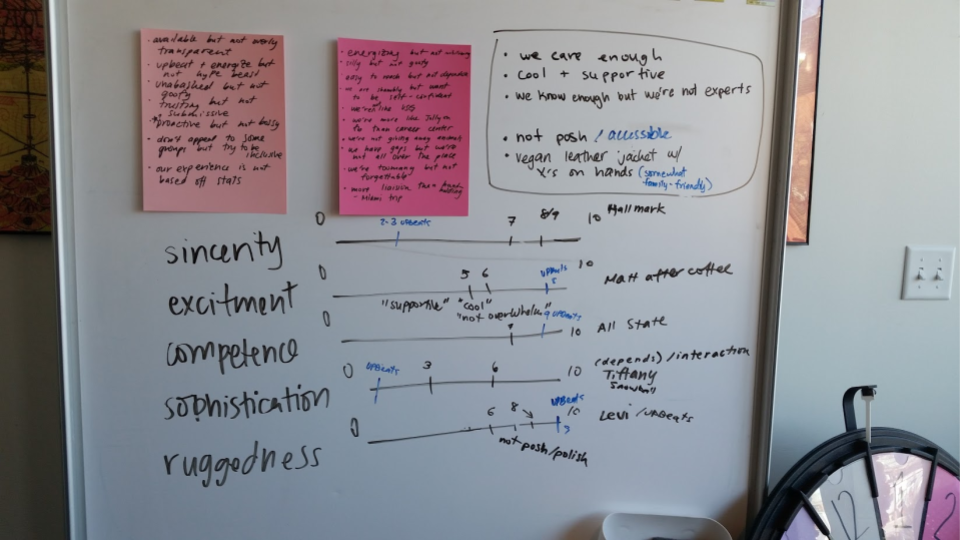 • available but not overly
transparent
• upbeat + energize but
not hype beast
• unabashed but not
goofy
• trusting but not
submissive
• proactive but not bossy
• don't appeal to some
groups but try to be
inclusive
• our experience is not
based off stats
• energizing but not
• silly but not goofy
easy to reach but not dependent
• we are but want
to be self-confident
• we're not like
• we're more like
than career center
• we're not giving away
• we have gaps but we're
not all over the place
• we're but not
forgettable
• more than
trip
• we care enough
• cool + supportive
• we know enough but we're not experts
• not posh / accessible
• vegan leather jacket w/
X's on hands (somewhat
family-friendly)
sincerity
0 2-3 upbeats 7 8/9 10 Hallmark
excitment
0 5 6 upbeats 10 Matt after coffee
"supportive" "cool"
"not overwhelm"
competence
0 9 upbeats 10 All State
sophistication
0 upbeats 3 6 10 (depends) / interaction
Tiffany
ruggodness
0 6 8 upbeats 10 Levi / upbeats
not posh/polish
12
1
2